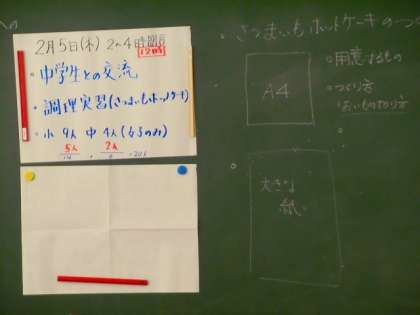 2月5日(木) 2〜4時間目
12時
・中学生との交流
・調理実習(さつまいもホットケーキ)
・小 9人 中 4人(女子のみ)
5人 2人
・さつまいもホットケーキのつ
A4
○用意するもの
○つくり方
○おいもの切り方
大きな
紙。